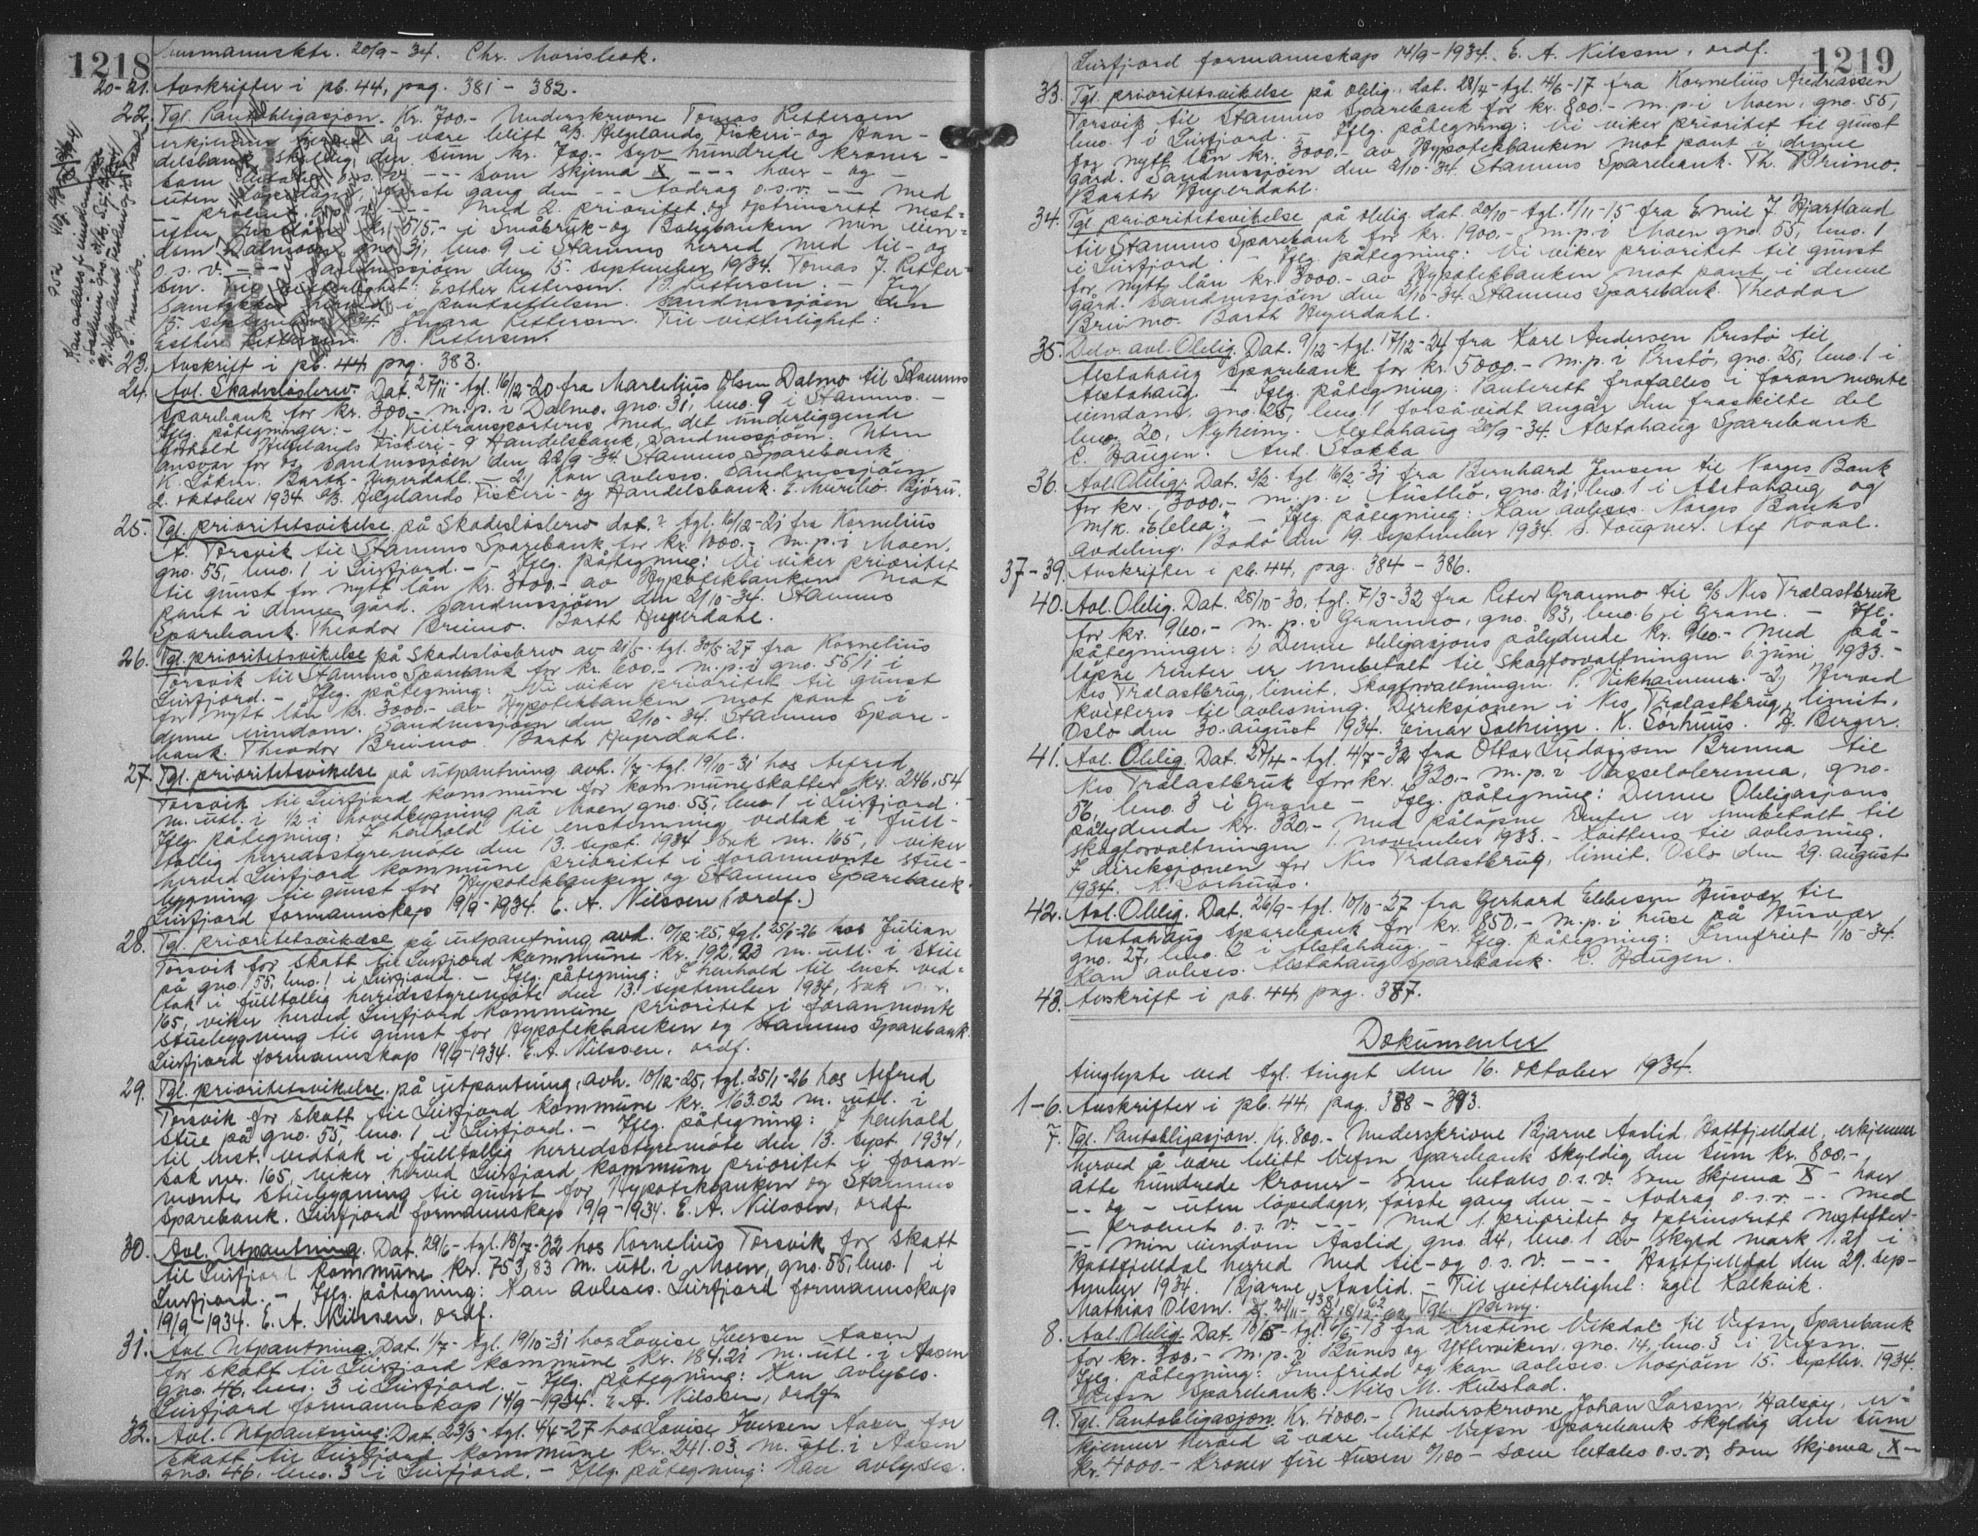 1218
Lensmannsktr. 20/9-34. Chr. Horsbøk.
20-21. Avskrifter i pb. 44, pag. 381 - 382.
22. Tgl. Pantobligasjon. Kr. 700.- Underskrivne Tomas Pettersen
erkjenner herved å være blitt a/s Helgelands Fiskeri- og Han-
delsbank skyldig den sum kr. 700.- syv hundrede kroner -
som betales o.s.v. --- som skjema X --- hver - og -
uten løpedager, første gang den -- Avdrag o.s.v. --- med
-- procent o.s.v. --- med 2. prioritet og optrinsrett nest-
efter kr. 515.- i Småbruk- og Boligbanken min eien-
dom Dalmo gno. 31, bno. 9 i Stamnes herred med til- og
o.s.v. --- Sandnessjøen den 15. september 1934. Tomas J. Petter-
sen. Til vitterlighet: Esther Pettersen. B. Pettersen. - Jeg
samtykker herved i pantsettelsen. Sandnessjøen den
15. september 1934. Pettersen. Til vitterlighet:
Esther Pettersen. B. Pettersen.
23. Avskrift i pb. 44 pag. 383.
24. Avl. Skadesløsbrev. Dat. 27/11 - tgl. 16/12-20 fra Marelius Olsen Dalmo til Stamnes
Sparebank for kr. 300.- m.p. i Dalmo, gno. 31, bno. 9 i Stamnes. -
Iflg. påtegninger: - 1) Viertransporteres med det underliggende
forhold Helgelands Fiskeri- & Handelsbank, Sandnessjøen. Uten
ansvar for os. Sandnessjøen den 22/9-34. Stamnes Sparebank
K. Løken. Barth-Heyerdahl. - 2) Kan avleses. Sandnessjøen
2. oktober 1934. a/s Helgelands Fiskeri- og Handelsbank. E. Murilio Bjørn.
25. Tgl. prioritetsvikelse på Skadesløsbrev dat. ? tgl. 16/12-21 fra Kornelius
A. Torsvik til Stamnes Sparebank for kr. 1000.- m.p. i Moen,
gno. 55, bno. 1 i Leirfjord. - Iflg. påtegning: Vi viker prioritet
til gunst for nytt lån kr. 3000.- av Hypotekbanken mot
pant i denne gård. Sandnessjøen den 2/10-34. Stamnes
Sparebank. Theodor Brinmo. Barth Heyerdahl.
26. Tgl. prioritetsvikelse på Skadesløsbrev av 21/5- tgl. 30/5-27 fra Kornelius
Torsvik til Stamnes Sparebank for kr. 600.- m.p. i gno. 55/1 i
Leirfjord. - Iflg. påtegning: Vi viker prioritet til gunst
for nytt lån kr. 3000.- av Hypotekbanken mot pant i
denne eiendom. Sandnessjøen den 2/10-34. Stamnes Spare-
bank. Theodor Brinmo. Barth Heyerdahl.
27. Tgl. prioritetsvikelse på utpantning avh. 1/7- tgl. 19/10-31 hos Alfred
Torsvik til Leirfjord kommune for kommuneskatter kr. 246,54
m. utl. i 1/2 i hovedbygning på Moen gno. 55, bno. 1 i Leirfjord. -
Iflg. påtegning: I henhold til enstemmig vedtak i full-
tallig herredsstyremøte den 13. sept. 1934 sak nr. 165, viker
herved Leirfjord kommune prioritet i forannevnte stue-
bygning til gunst for Hypotekbanken og Stamnes Sparebank.
Leirfjord formannskap 19/9-1934. E. A. Nilssen (ordf.)
28. Tgl. prioritetsvikelse på utpantning avh. 10/12-25, tgl. 25/1-26 hos Julian
Torsvik for skatt til Leirfjord kommune kr. 192.93 m. utl. i stue
på gno. 55, bno. 1 i Leirfjord. - Iflg. påtegning: I henhold til enst. ved-
tak i fulltallig herredsstyremøte den 13. september 1934, sak nr.
165, viker herved Leirfjord kommune prioritet i forannevnte
stuebygning til gunst for Hypotekbanken og Stamnes Sparebank.
Leirfjord formannskap 19/9-1934. E. A. Nilssen, ordf.
29. Tgl. prioritetsvikelse på utpantning, avh. 10/12-25, tgl. 25/1-26 hos Alfred
Torsvik for skatt til Leirfjord kommune kr. 163.02 m. utl. i
stue på gno. 55, bno. 1 i Leirfjord. - Iflg. påtegning: I henhold
til enst. vedtak i fulltallig herredsstyremøte den 13. sept 1934,
sak nr. 165, viker herved Leirfjord kommune prioritet i foran-
nevnte stuebygning til gunst for Hypotekbanken og Stamnes
Sparebank. Leirfjord formannskap 19/9-1934. E. A. Nilssen, ordf.
30. Avl. Utpantning. Dat. 29/6- tgl. 18/7-32 hos Kornelius Torsvik for skatt
til Leirfjord kommune kr. 753,83 m. utl. i Moen, gno. 55, bno. 1 i
Leirfjord. - Iflg. påtegning: Kan avleses. Leirfjord formannskap
19/9-1934. E. A. Nilssen, ordf.
31. Avl. Utpantning. Dat. 1/7- tgl. 19/10-31 hos Lovise Iversen Aasen
for skatt til Leirfjord kommune kr. 184.21 m. utl. i Aasen
gno. 46, bno. 3 i Leirfjord. - Iflg. påtegning: Kan avlyses.
Leirfjord formannskap 14/9-1934. E. A. Nilssen, ordf.
32. Avl. Utpantning. Dat. 23/3- tgl. 4/4-27 hos Lovise Iversen Aasen for
skatt til Leirfjord kommune kr. 241.03 m. utl. i Aasen
gno. 46, bno. 3 i Leirfjord. - Iflg. påtegning: Kan avlyses.
1219
Leirfjord formannskap 14/9-1934. E. A. Nilssen, ordf.
33. Tgl. prioritetsvikelse på oblig. dat. 28/4- tgl. 14/6-17 fra Kornelius Andreassen
Torsvik til Stamnes Sparebank for kr. 800.- m.p. i Moen, gno. 55,
bno. 1 i Leirfjord. - Iflg. påtegning: Vi viker prioritet til gunst
for nytt lån kr. 3000.- av Hypotekbanken mot pant i denne
gård. Sandnessjøen den 2/10-34. Stamnes Sparebank. Th. Brinmo.
Barth Heyerdahl.
34. Tgl. prioritetsvikelse på oblig. dat. 20/10- tgl. 1/11-15 fra Emil J. Bjartland
til Stamnes Sparebank for kr. 1900.- m.p. i Moen gno. 55, bno. 1
i Leirfjord. - Iflg. påtegning: Vi viker prioritet til gunst
for nytt lån kr. 3000.- av Hypotekbanken mot pant i denne
gård. Sandnessjøen den 2/10-34. Stamnes Sparebank. Theodor
Brinmo. Barth Heyerdahl.
35. Delv. avl. Oblig. Dat. 9/12- tgl. 17/12-24 fra Karl Andersen Prestø til
Alstahaug Sparebank for kr. 5000.- m.p. i Prestø, gno. 25, bno. 1 i
Alstahaug. - Iflg. påtegning: Panterett frafalles i forannevnte
eiendom, gno. 25, bno. 1 forsåvidt angår den fraskilte del
bno. 20, Nyheim. Alstahaug 20/9-34. Alstahaug Sparebank
C. Haugen. And. Stokka
36. Avl. Oblig. Dat. 3/2- tgl. 16/2-31 fra Bernhard Jensen til Norges Bank
for kr. 3000.- m.p. i Austbø, gno. 21, bno. 1 i Alstahaug og
m/k. "Elela". - Iflg. påtegning: Kan avleses. Norges Banks
avdeling. Bodø den 19. september 1934. S. Tougner. Alf Kvaal.
37-39. Avskrifter i pb. 44, pag. 384 - 386.
40. Avl. Oblig. Dat. 25/10-30, tgl. 7/3-32 fra Peter Granmo til a/s Nes Trælastbruk
for kr. 960.- m.p. i Granmo, gno. 83, bno. 6 i Grane. - Ifl.
påtegninger: 1) Denne obligasjons pålydende kr. 960.- med på-
løpne renter er innbetalt til skogforvaltningen 6. juni 1933. -
Nes Trælastbrug, limit. Skogforvaltningen. P. Vikhammer. - 2) Herved
kvitteres til avlesning. Direksjonen i Nes Trælastbrug, limit.
Oslo den 30. august 1934. Einar Solheim. K. Sørhuus. A. Berger.
41. Avl. Oblig. Dat. 27/4- tgl. 4/7-32 fra Ottar Brenna til
Nes Trælastbruk for kr. 320.- m.p. i Vasselvbrenna, gno.
56, bno. 3 i Grane - Iflg. påtegning: Denne Obligasjons
pålydende kr. 320.- med påløpne renter er innbetalt til
skogforvaltningen 1. november 1933. - Kvitteres til avlesning.
I direksjonen for Nes Trælastbrug, limit. Oslo den 29. august
1934. K. Sørhuus.
42. Avl. Oblig. Dat. 26/9- tgl. 10/10-27 fra Gerhard Ellbesen Husvær til
Alstahaug Sparebank for kr. 850.- m.p. i huse på Husvær
gno. 27, bno. 2 i Alstahaug. - Iflg. påtegning: Innfriet 1/10-34.
Kan avleses. Alstahaug Sparebank. C. Haugen.
43. Avskrift i pb. 44, pag. 387.
Dokumenter
tinglyste ved tgl. tinget den 16. oktober 1934.
1-6. Avskrifter i pb. 44, pag. 388 - 393.
7. Tgl. Pantobligasjon. Kr. 800.- Underskrivne Bjarne Aaslid, Hattfjelldal, erkjenner
herved å være blitt Vefsn Sparebank skyldig den sum kr. 800.-
åtte hundrede kroner - som betales o.s.v. som skjema X - hver
-- og - uten løpedager, første gang den -- Avdrag o.s.v. -- med
-- procent o.s.v. --- med 1. prioritet og optrinsrett nestefter
-- min eiendom Aaslid, gno. 24, bno. 1 av skyld mark 1.21 i
Hattfjelldal herred med til- og o.s.v. --- Hattfjelldal den 29. sep-
tember 1934. Bjarne Aaslid. - Til vitterlighet: Egil Kalkvik.
Mathias Olsen. Tgl. påny.
8. Avl. Oblig. Dat. 10/5- tgl. 6/6-18 fra Kristine Vikdal til Vefsn Sparebank
for kr. 300.- m.p. i Bunes og Ytterviken, gno. 14, bno. 3 i Vefsn. -
Iflg. påtegning: Innfridd og kan avleses. Mosjøen 15. septbr. 1934.
Vefsn Sparebank. Nils M. Kulstad.
9. Tgl. Pantobligasjon. Kr. 4000.- Underskrivne Johan Larsen, Halsøy, er-
kjenner herved å være blitt Vefsn Sparebank skyldig den sum
kr. 4000.- kroner fire tusen 0/100 - som betales o.s.v. som skjema X -